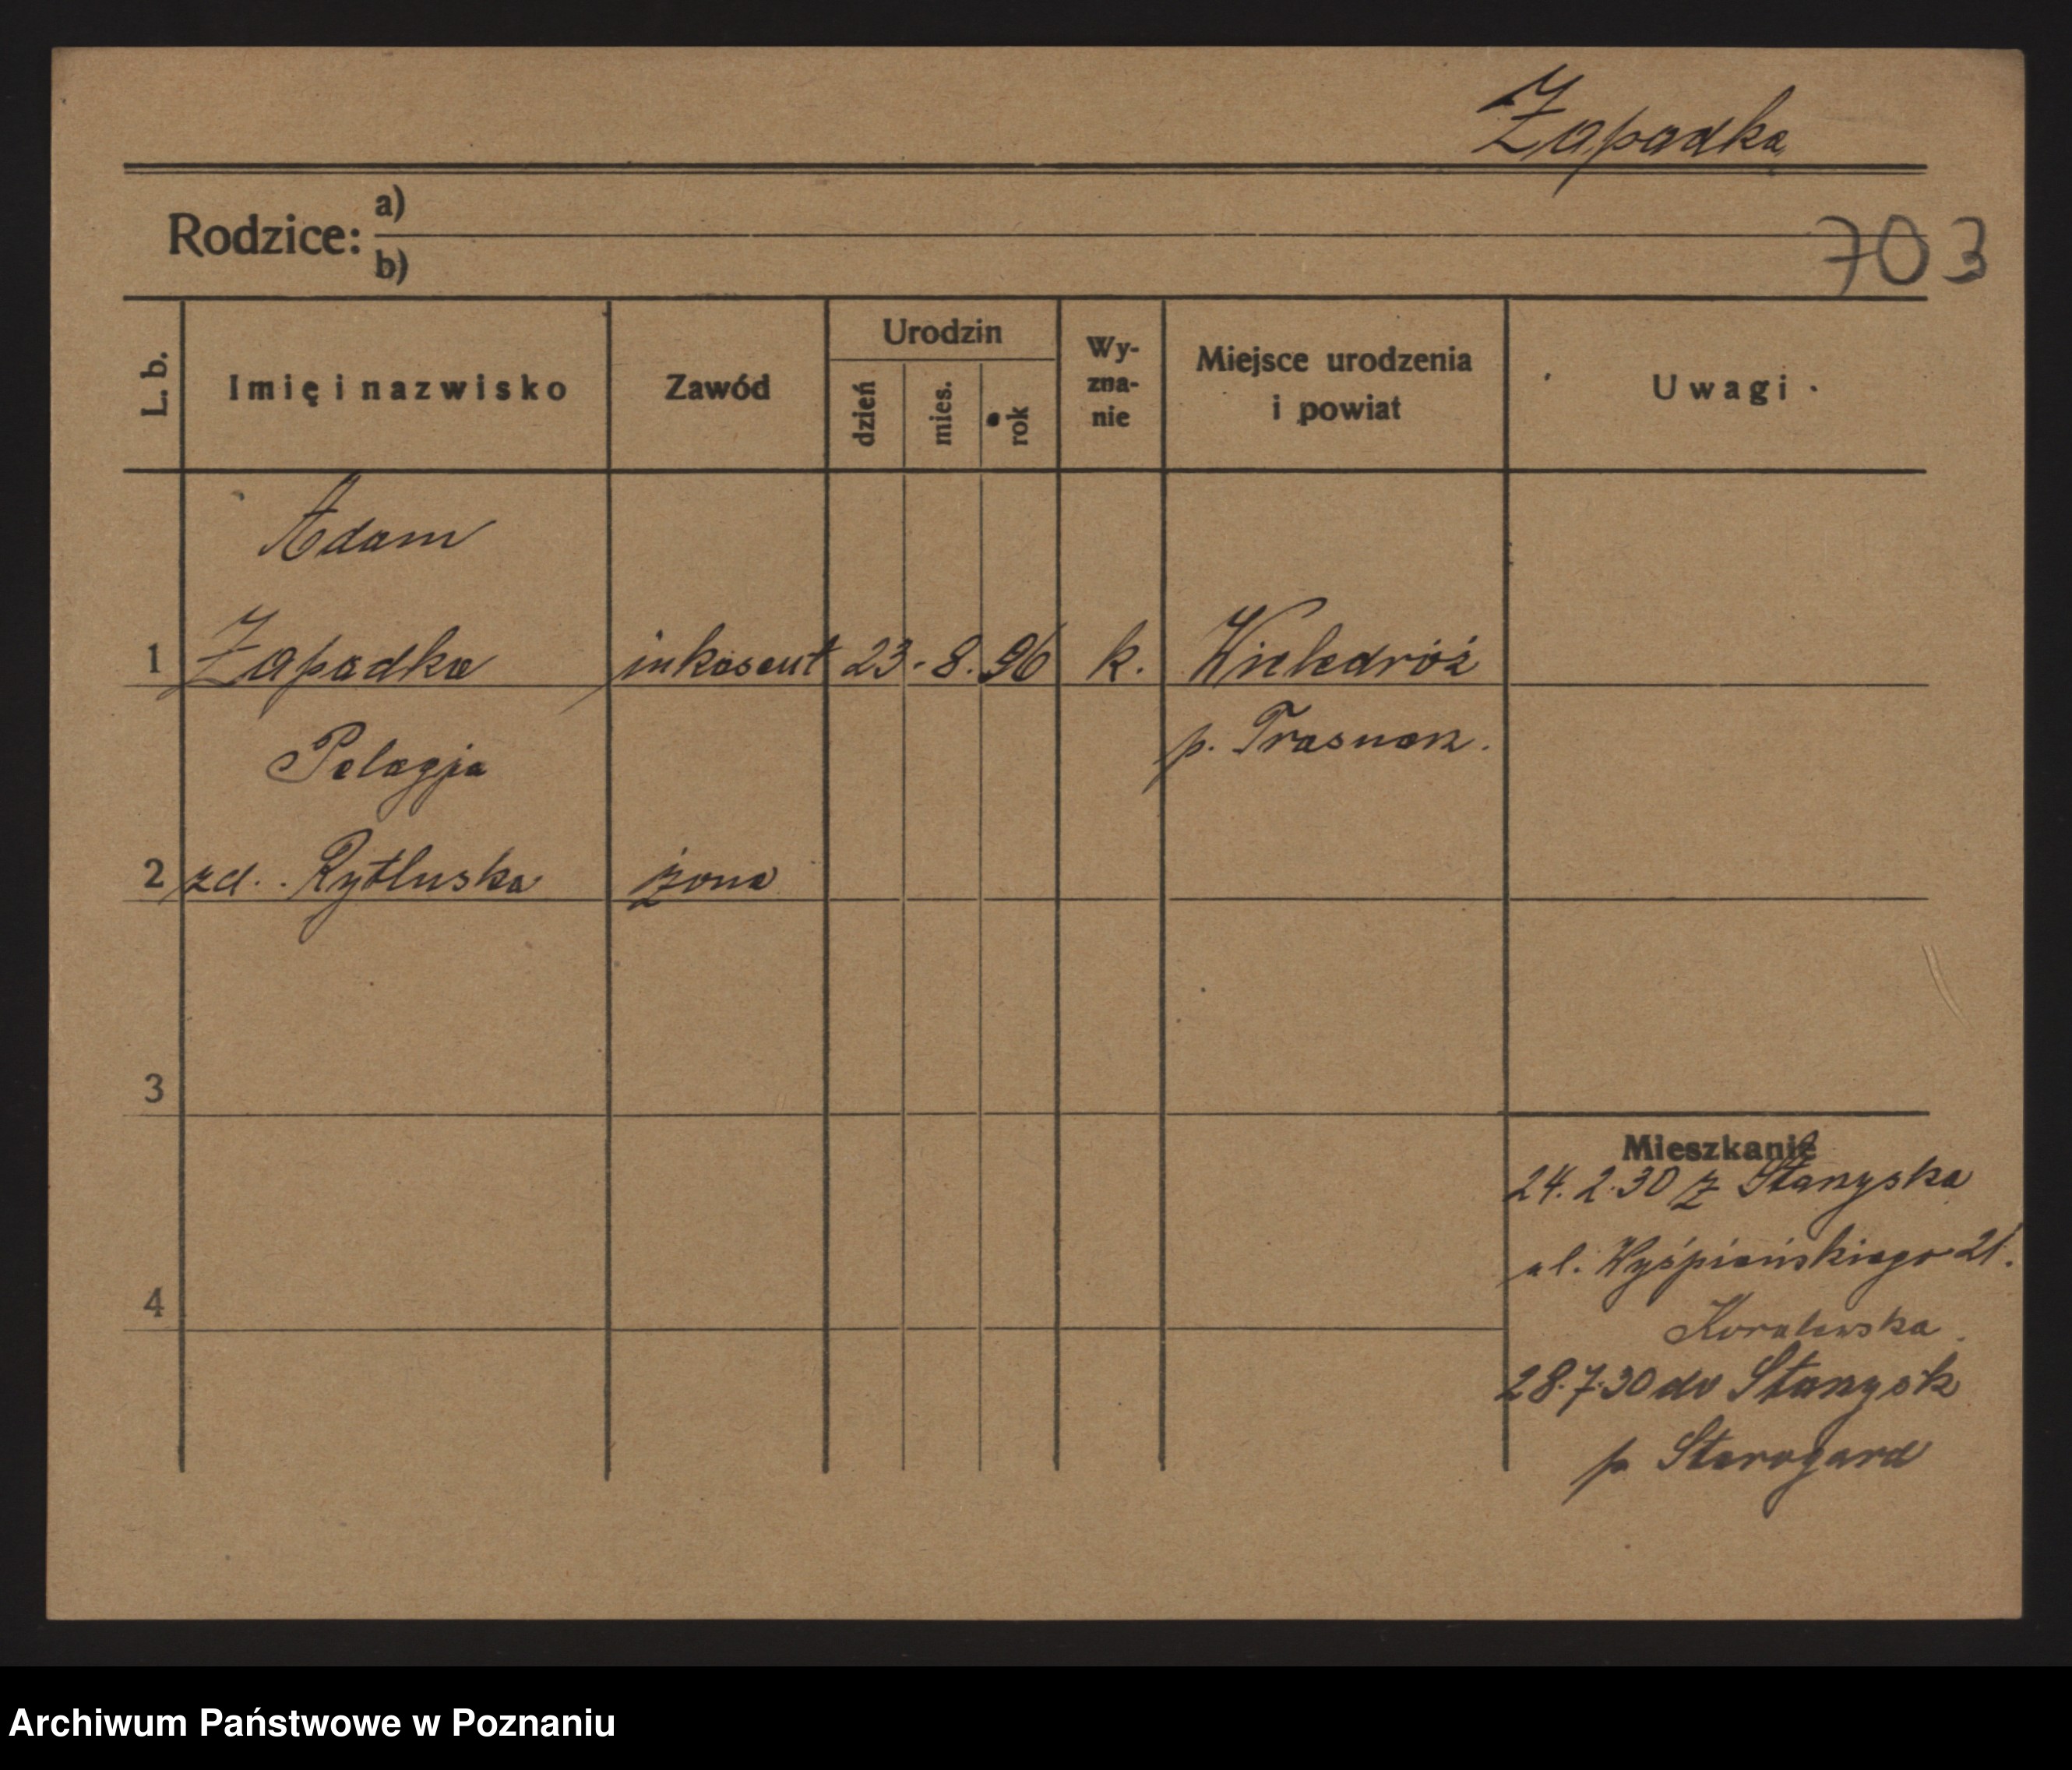 Zapadka
Rodzice: a)
b)
703
L. b.
Imię i nazwisko
Zawód
Urodzin
dzień
mies.
rok
Wy-
zna-
nie
Miejsce urodzenia
i powiat
Uwagi
Adam
1 Zapadka inkasent 23. 8. 96 k. Wieledróż
p. Trasnan.
Pelagja
2 zd. Rytluska żona
3
4
Mieszkanie
24. 2. 30 z Stanyska
ul. Wyśpiańskiego 21.
Koralewska
28. 7. 30 do Stanysk
p Starogard
Archiwum Państwowe w Poznaniu